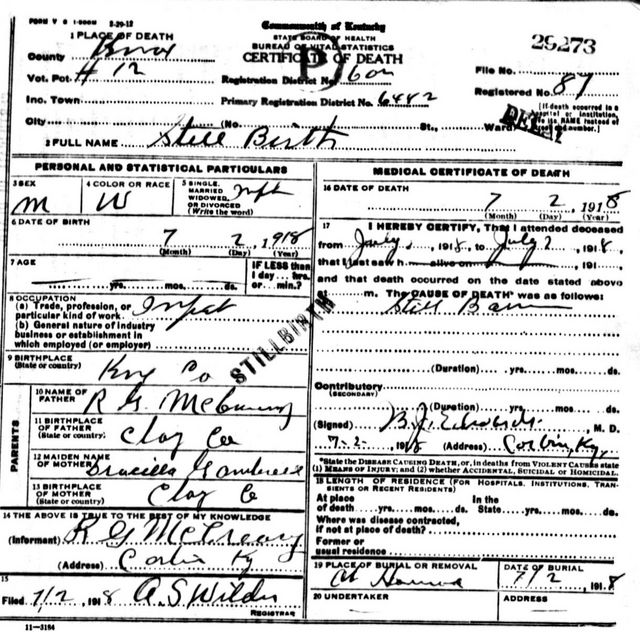 FORM V S 1-500M 2-29-12
Commonwealth of Kentucky
STATE BOARD OF HEALTH
BUREAU OF VITAL STATISTICS
CERTIFICATE OF DEATH
1 PLACE OF DEATH
County Knox
Vot. Pct # 12
Inc. Town
City
(No. St., Ward)
Registration District No. 601
Primary Registration District No. 6442
P
29273
File No.
Registered No. 87
[If death occurred in a hospital or institution, give its NAME instead of street and number.]
2 FULL NAME Still Birth
PERSONAL AND STATISTICAL PARTICULARS
3 SEX M
4 COLOR OR RACE W
5 SINGLE, MARRIED, WIDOWED, OR DIVORCED (Write the word) Inft
6 DATE OF BIRTH
7 2, 1918
(Month) (Day) (Year)
7 AGE
yrs. mos. ds.
IF LESS than 1 day ... hrs. or ... min.?
8 OCCUPATION
(a) Trade, profession, or particular kind of work
(b) General nature of industry business or establishment in which employed (or employer)
9 BIRTHPLACE
(State or country) Knx Co
STILLBIRTH
PARENTS
10 NAME OF FATHER R G McCreary
11 BIRTHPLACE OF FATHER
(State or country) Clay Co
12 MAIDEN NAME OF MOTHER
13 BIRTHPLACE OF MOTHER
(State or country) Clay Co
14 THE ABOVE IS TRUE TO THE BEST OF MY KNOWLEDGE
(Informant) R G McCreary
(Address) Corbin Ky
15
Filed 7/2 1918 A. S. Wilder
REGISTRAR
11-3184
MEDICAL CERTIFICATE OF DEATH
16 DATE OF DEATH
7 2, 1918
(Month) (Day) (Year)
17 I HEREBY CERTIFY, That I attended deceased
from July 2, 1918, to July 2, 1918,
that I last saw h alive on , 191 ,
and that death occurred on the date stated above
m. The CAUSE OF DEATH* was as follows:
Still Born
(Duration) yrs. mos. ds.
Contributory
(SECONDARY)
(Duration) yrs. mos. ds.
(Signed) B. J. Edwards, M. D.
7-2- 1918 (Address) Corbin, Ky.
*State the DISEASE CAUSING DEATH, or, in deaths from VIOLENT CAUSES state
(1) MEANS OF INJURY; and (2) whether ACCIDENTAL, SUICIDAL or HOMICIDAL.
18 LENGTH OF RESIDENCE (FOR HOSPITALS, INSTITUTIONS, TRANSIENTS OR RECENT RESIDENTS)
At place of death yrs. mos. ds. In the State yrs. mos. ds.
Where was disease contracted, if not at place of death?
Former or usual residence
19 PLACE OF BURIAL OR REMOVAL
DATE OF BURIAL
7/2, 1918
20 UNDERTAKER
ADDRESS